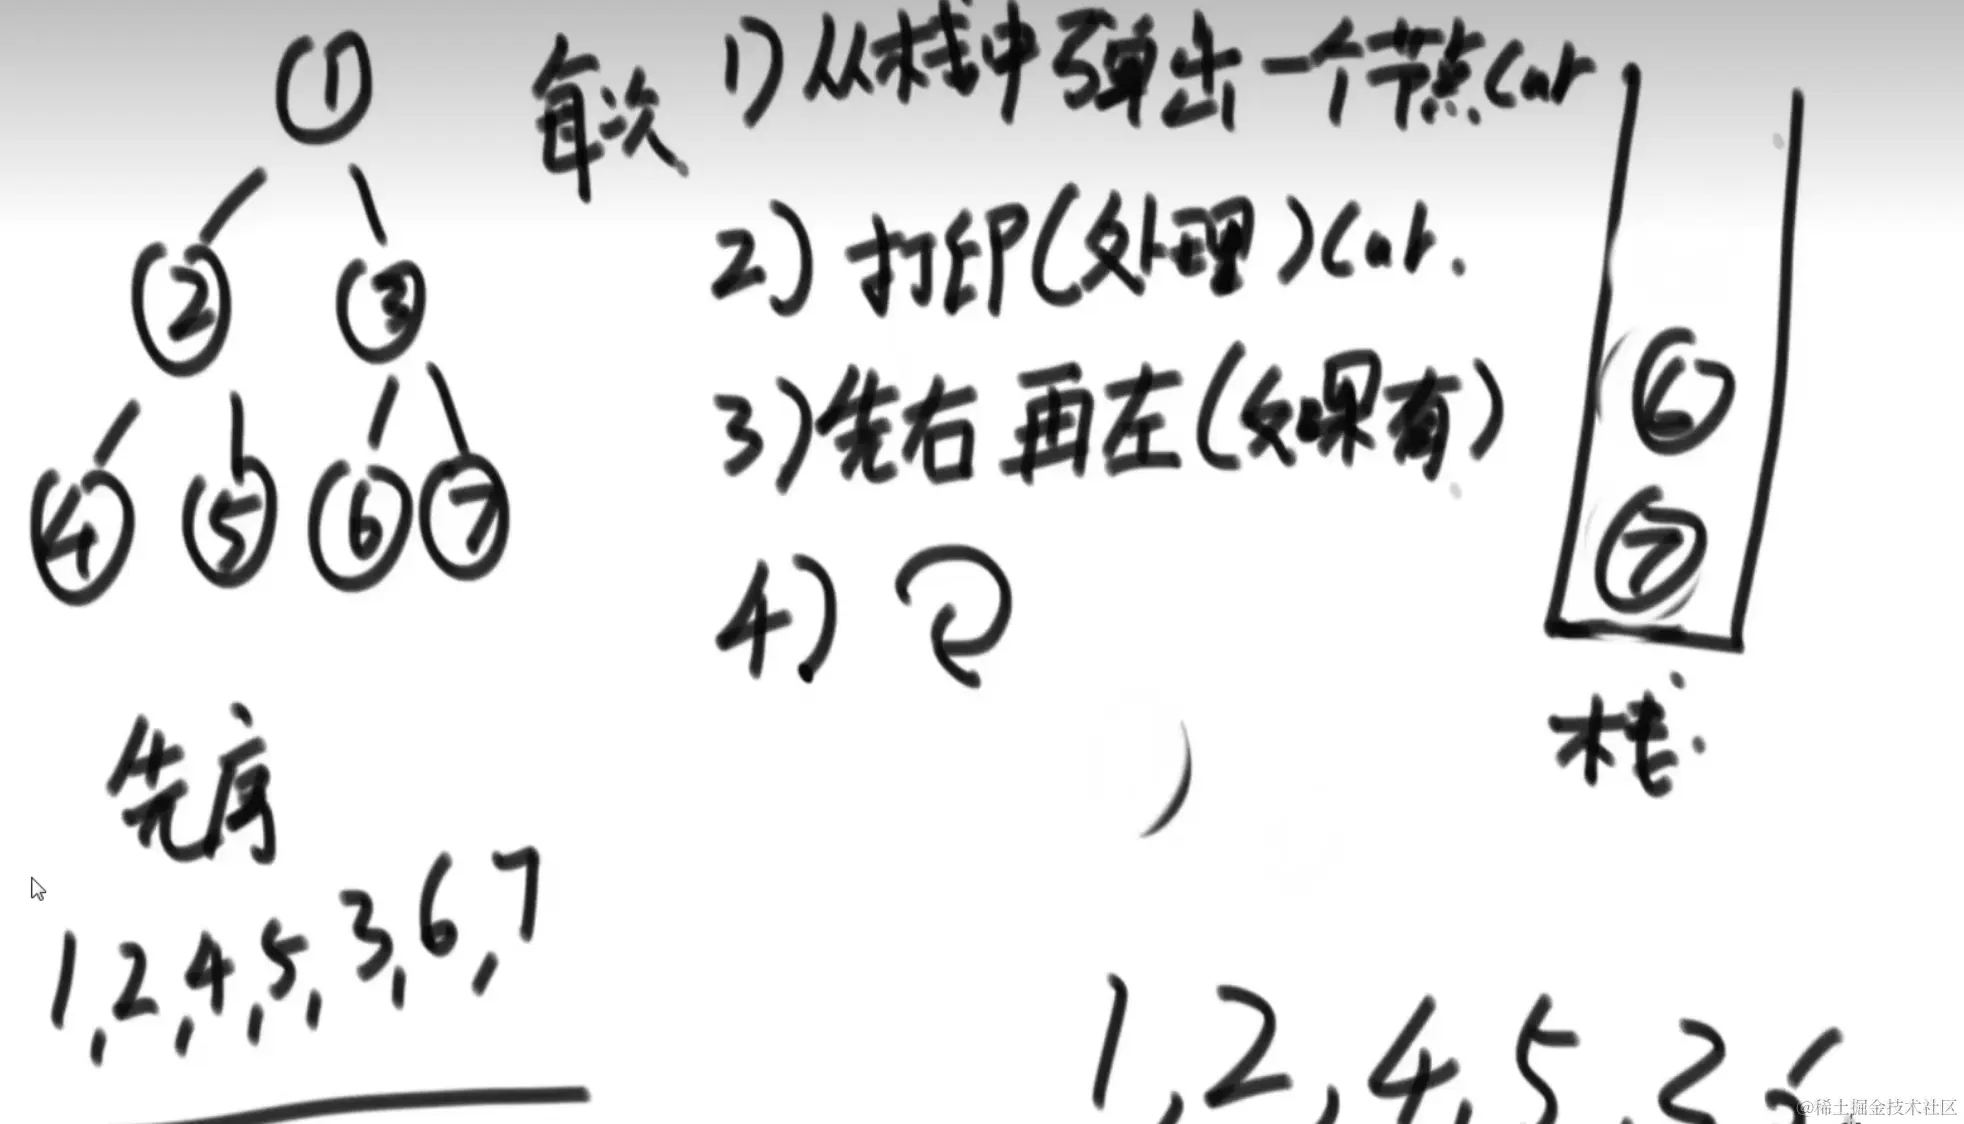 ①
每次 1) 从栈中弹出一个节点cur
2) 打印(处理)cur.
② ③
3) 先右再左(如果有)
④ ⑤ ⑥ ⑦
4)
⑥
⑦
栈
先序
1,2,4,5,3,6,7
1,2,4,5,3
@稀土掘金技术社区